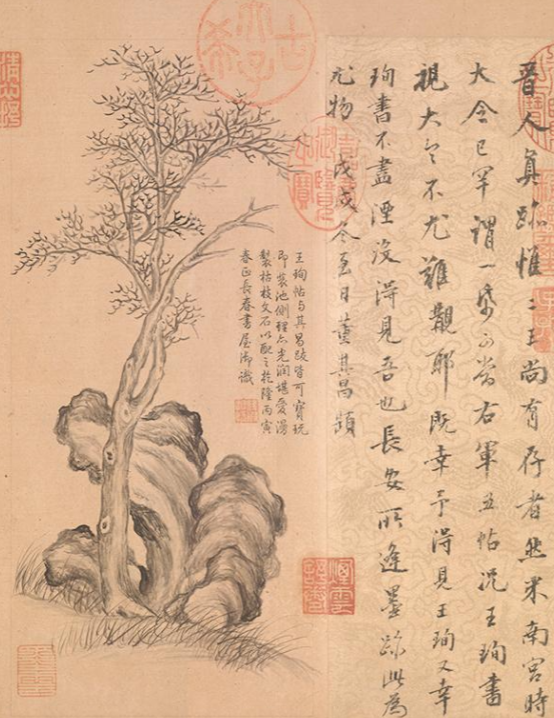 晉人真跡惟二王尚有存者然米南宮時
大令已罕謂一帋可當右軍五帖況王珣書
視大令不尤難覯耶既幸予得見王珣又幸
珣書不盡湮沒得見吾也長安所逢墨跡此為
尤物 戊戌冬至日董其昌題
王珣帖與其昌跋皆可寶玩
即裝池側理亦光潤堪愛漫
製枯枝文石以配之乾隆丙寅
春正長春書屋御識
古希天子